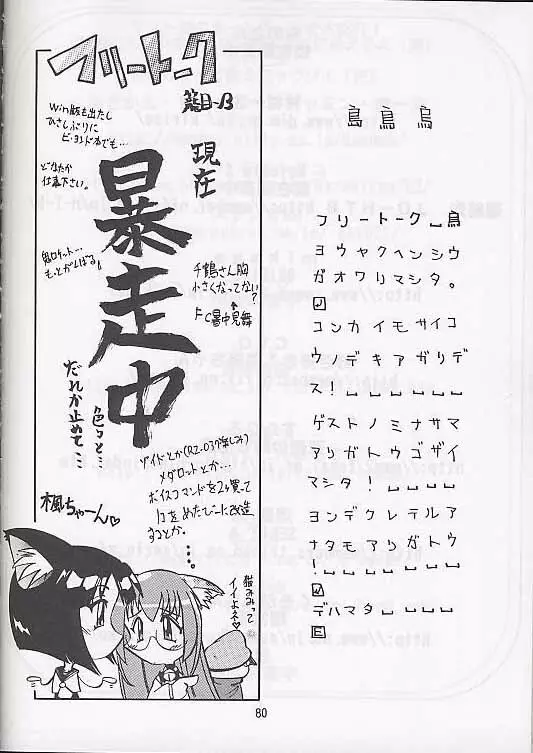 フリートーク
籠目-B
Win版も出たし
ひさしぶりに
ビ・ヨンド本でも…
どなたか
仕事下さい。
鬼ロケット…
もっとがんばる!
現在
暴走中
千鶴さん胸
小さくなってない?
↑
FC暑中見舞
色々と…
だれか止めて…
ゾイドとか(RZ-037楽しみ)
メダロットとか…
ボイスコマンドを2ヶ買って
1コをめたびーに改造
するとか。
…。
楓ちゃーん♡
猫みみって
イイよネ♡
鳥 鳥 鳥
フリートーク␣鳥
ヨウヤクヘンシウ
ガオワリマシタ。
コンカイモサイコ
ウノデキアガリデ
ス!␣␣␣␣␣␣
ゲストノミナサマ
アリガトウゴザイ
マシタ!␣␣␣␣
ヨンデクレテルア
ナタモアリガトウ
!␣␣␣␣␣
デハマタ␣␣␣␣
E
80